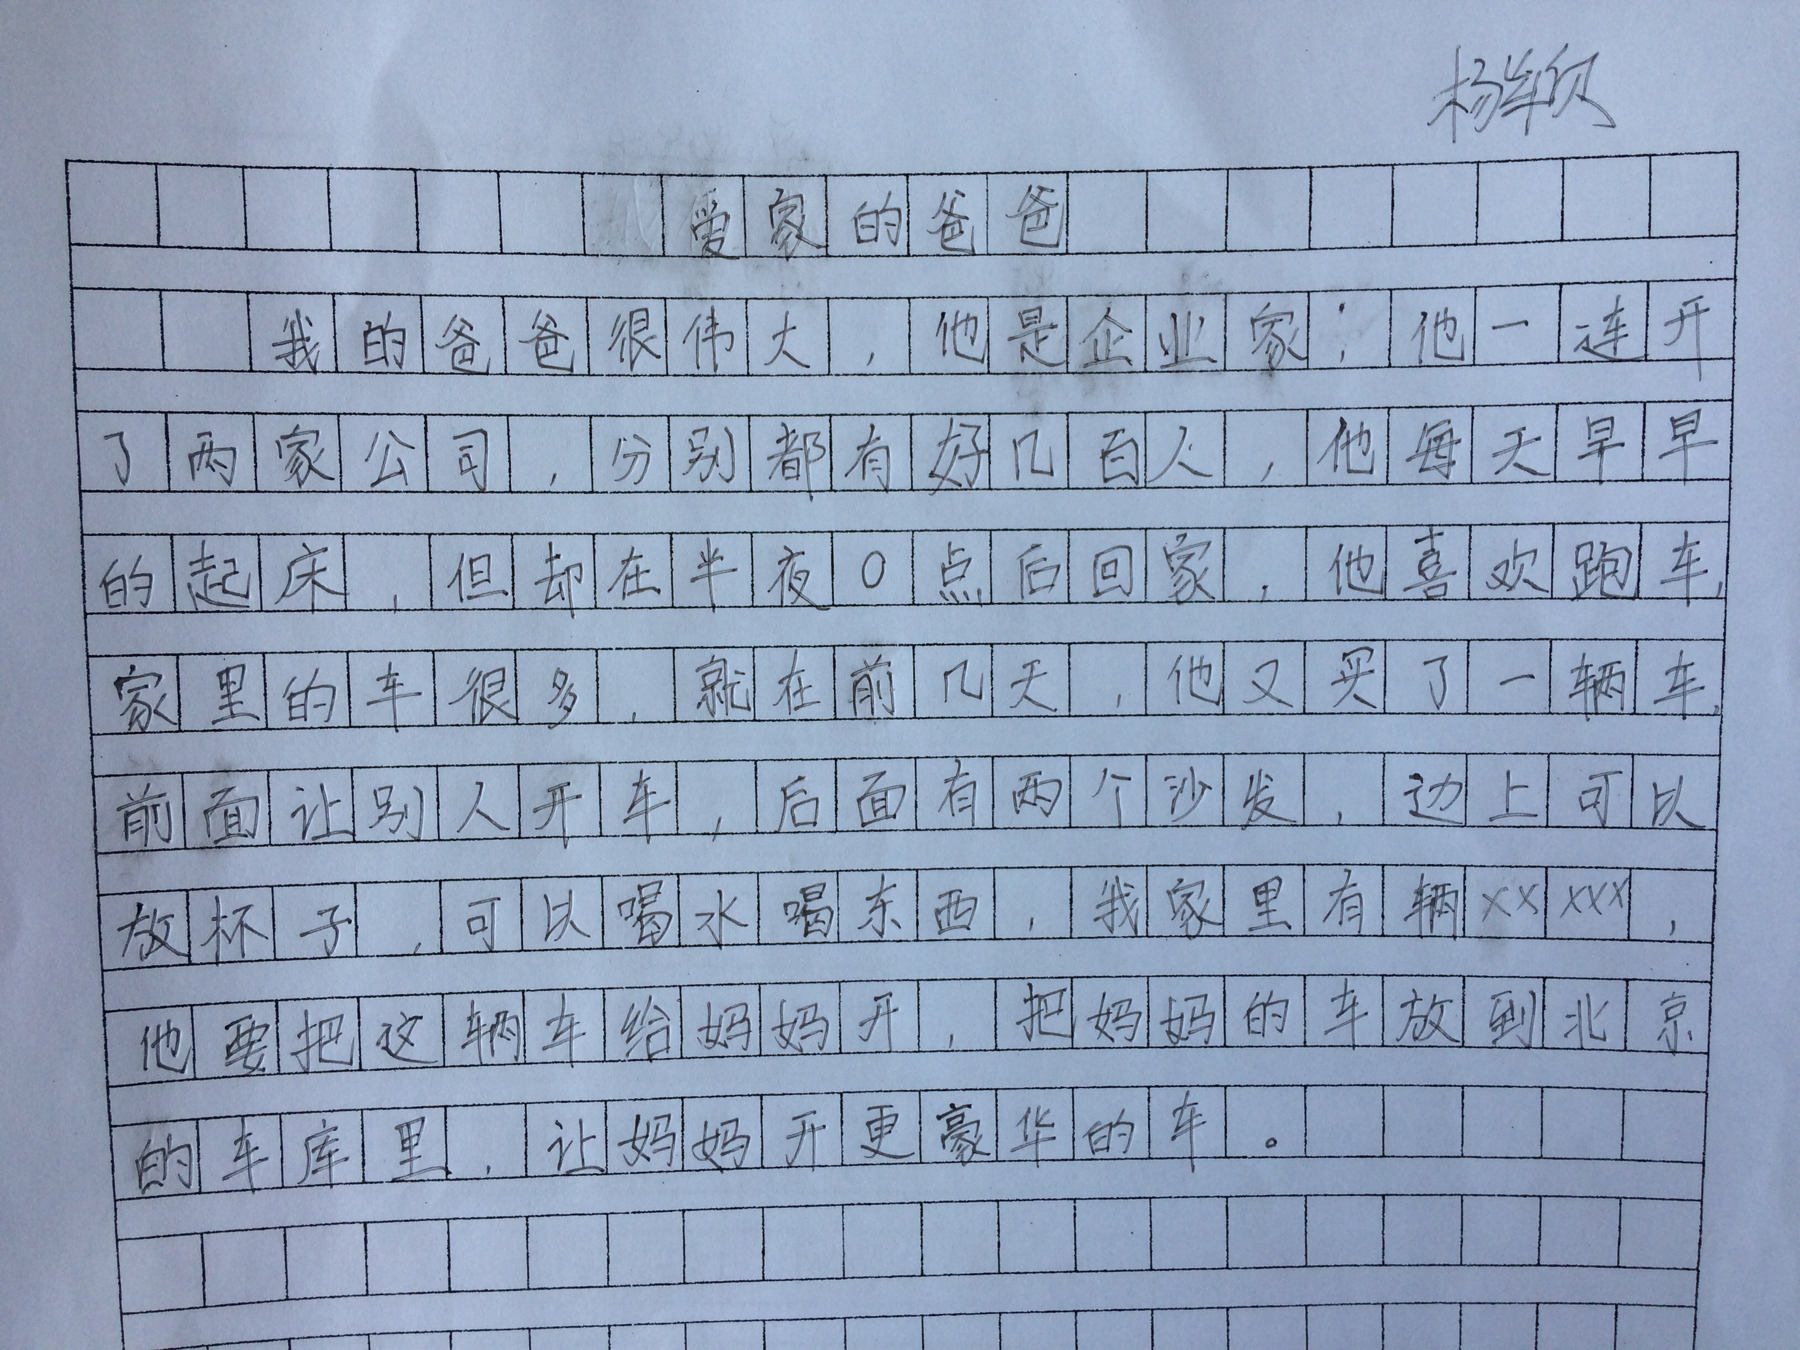 爱家的爸爸
我的爸爸很伟大，他是企业家；他一连开
了两家公司，分别都有好几百人，他每天早早
的起床，但却在半夜0点后回家，他喜欢跑车，
家里的车很多，就在前几天，他又买了一辆车，
前面让别人开车，后面有两个沙发，边上可以
放杯子，可以喝水喝东西，我家里有辆XXXXX，
他要把这辆车给妈妈开，把妈妈的车放到北京
的车库里，让妈妈开更豪华的车。